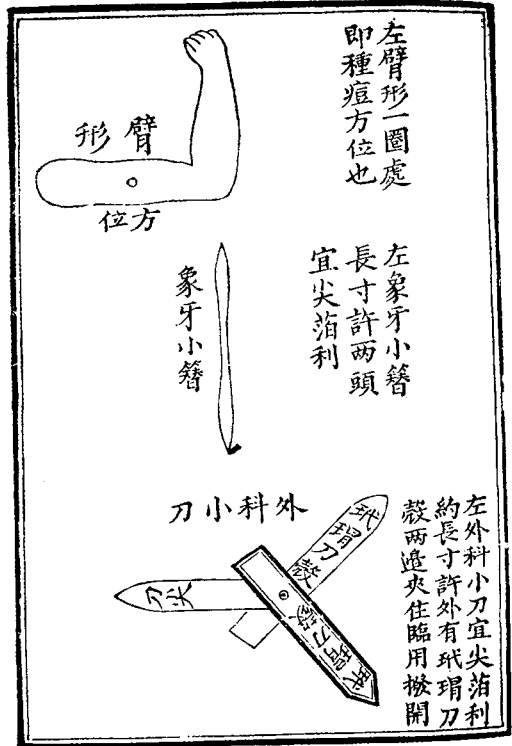 左臂形一圈處
即種痘方位也
臂形
方位
左象牙小簪
長寸許两頭
宜尖萡利
象牙小簪
左外科小刀宜尖萡利
約長寸許外有玳瑁刀
殼两邉夾住臨用撥開
外科小刀
玳瑁刀殼
刀尖
玳瑁刀殼